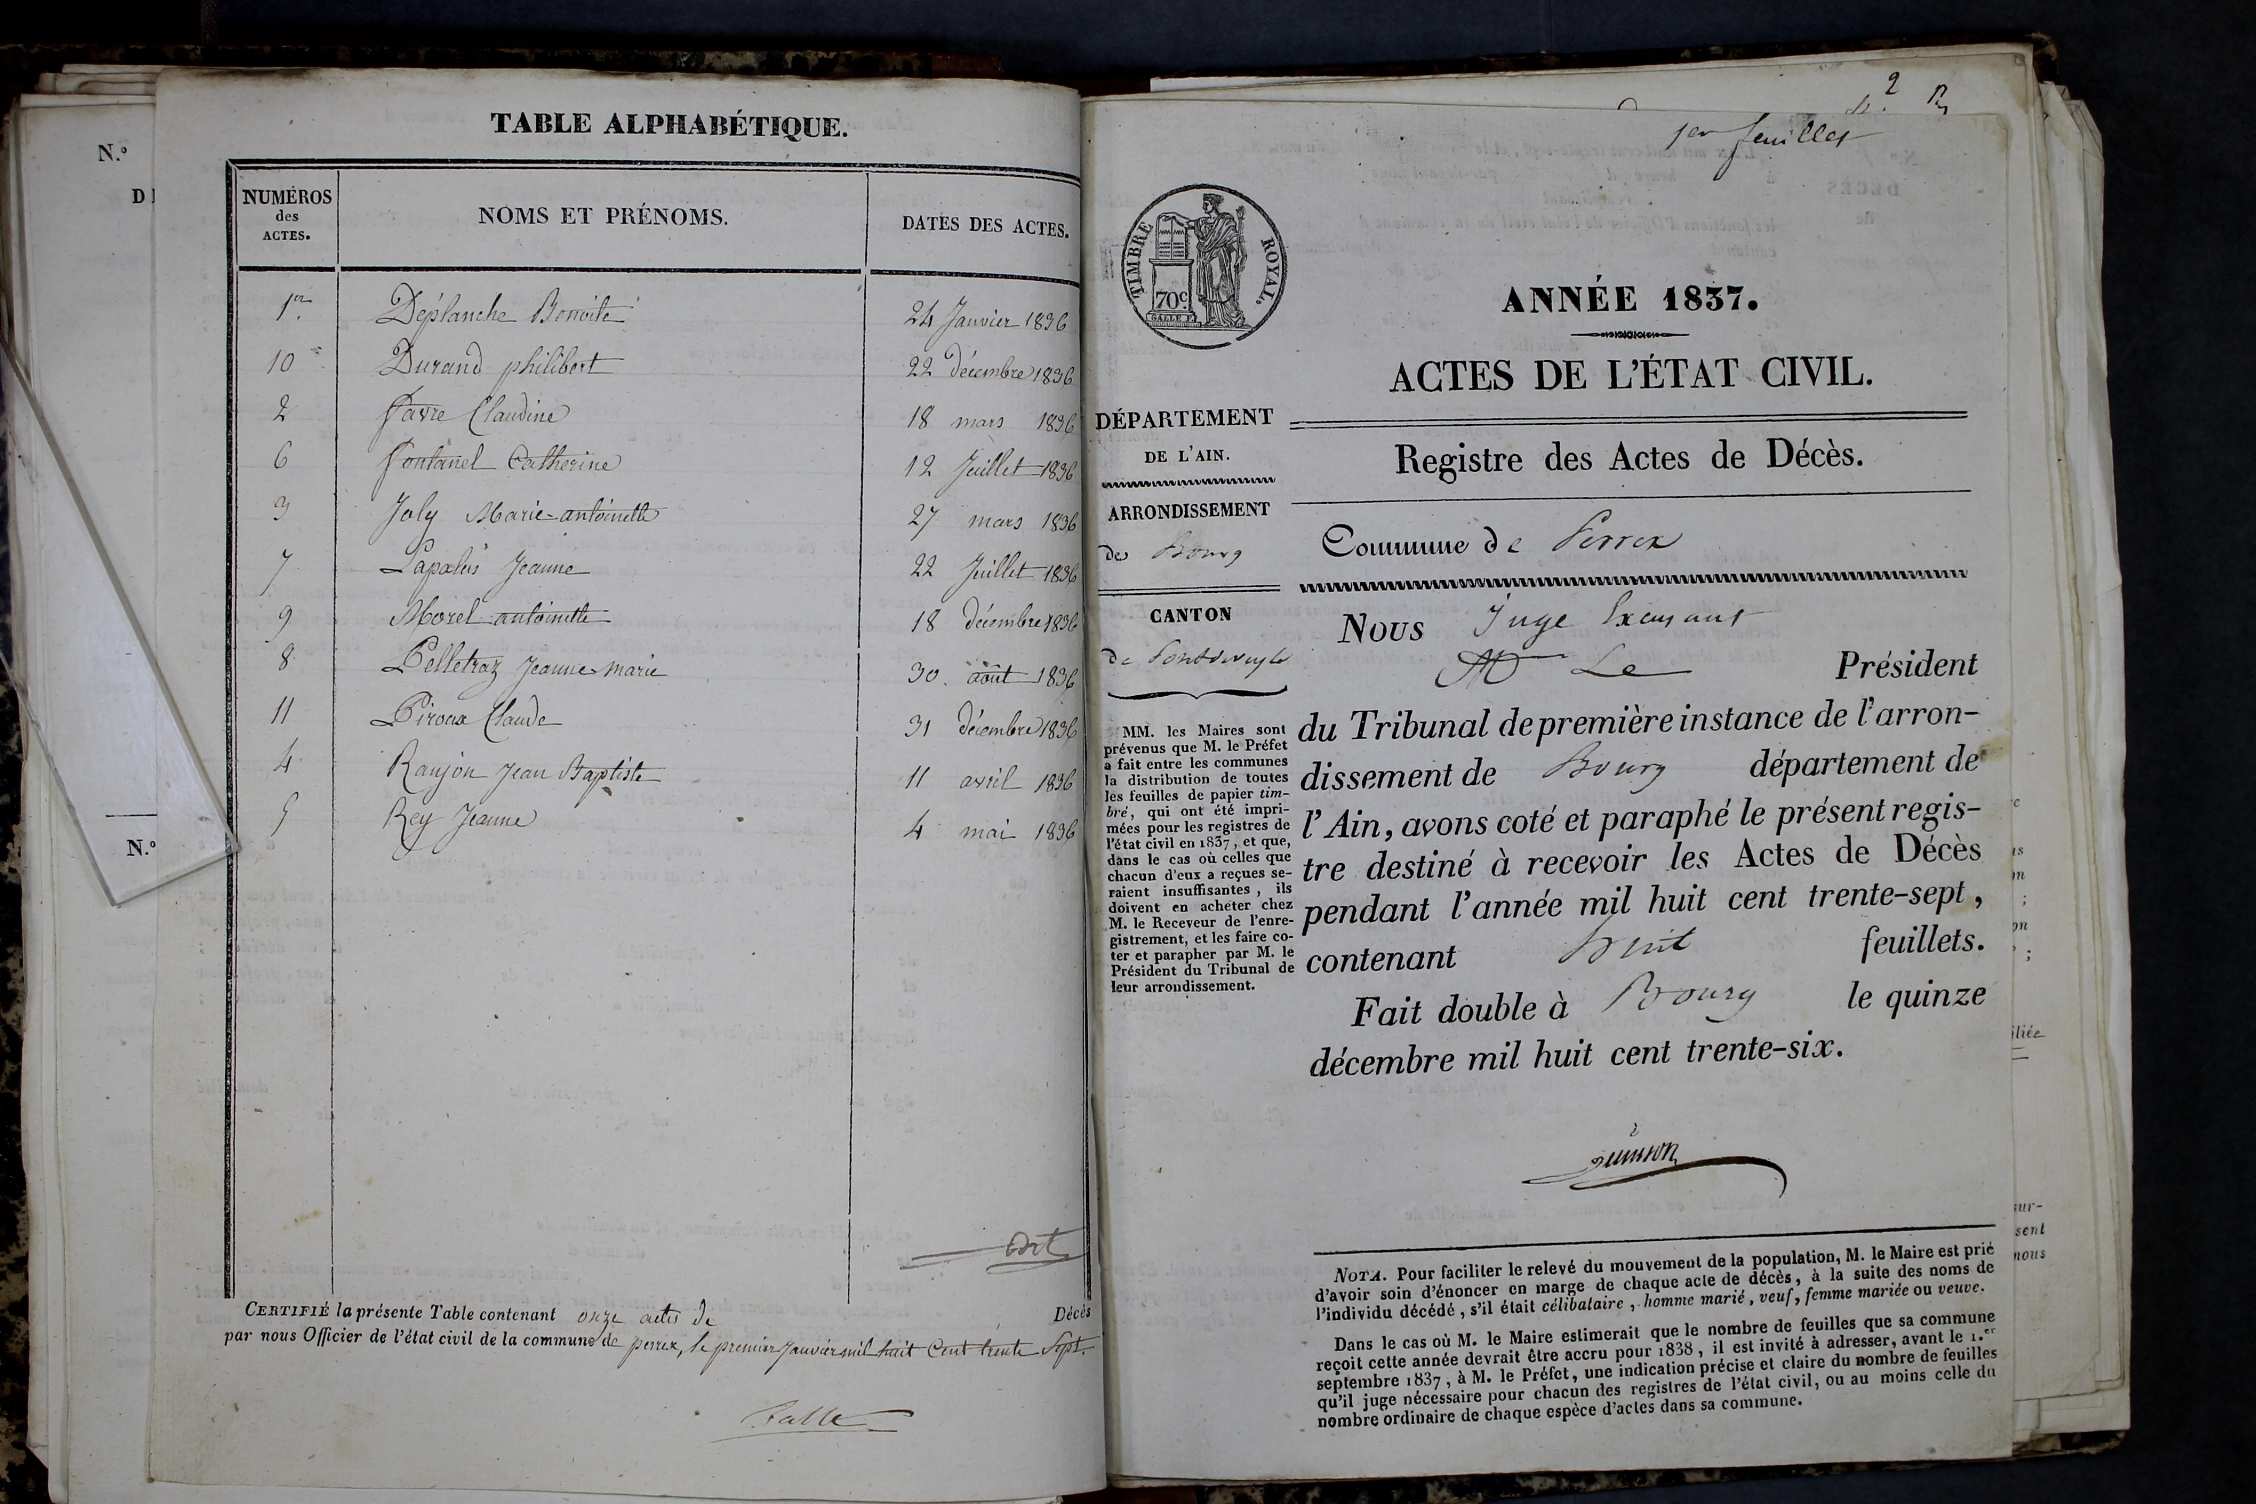 N.º
D
N.º
TABLE ALPHABÉTIQUE.
NUMÉROS
des
ACTES.
NOMS ET PRÉNOMS.
DATES DES ACTES.
1er. Déplanche Benoite 24 Janvier 1836
10 Durand philibert 22 décembre 1836
2 Favre Claudine 18 mars 1836
6 Fontanel Catherine 12 Juillet 1836
3 Joly Marie-antoinette 27 mars 1836
7 Jeanne 22 Juillet 1836
9 Morel antoinette 18 décembre 1836
8 Pelletraz Jeanne-marie 30 août 1836
11 Piroux Claude 31 décembre 1836
4 Ranjon Jean Baptiste 11 avril 1836
5 Rey Jeanne 4 mai 1836
CERTIFIÉ la présente Table contenant onze actes de Décès
par nous Officier de l'état civil de la commune de perrex, le premier Janvier mil huit Cent trente Sept.
1er feuillet
TIMBRE ROYAL.
70c.
GALLE F.
ANNÉE 1837.
ACTES DE L'ÉTAT CIVIL.
Registre des Actes de Décès.
Commune de Perrex
DÉPARTEMENT
DE L'AIN.
ARRONDISSEMENT
de Bourg
CANTON
de Pontdeveyle
MM. les Maires sont
prévenus que M. le Préfet
a fait entre les communes
la distribution de toutes
les feuilles de papier tim-
bré, qui ont été impri-
mées pour les registres de
l'état civil en 1837, et que,
dans le cas où celles que
chacun d'eux a reçues se-
raient insuffisantes, ils
doivent en acheter chez
M. le Receveur de l'enre-
gistrement, et les faire co-
ter et parapher par M. le
Président du Tribunal de
leur arrondissement.
Nous Juge Exerçant
Mr Le Président
du Tribunal de première instance de l'arron-
dissement de Bourg département de
l'Ain, avons coté et paraphé le présent regis-
tre destiné à recevoir les Actes de Décès
pendant l'année mil huit cent trente-sept,
contenant huit feuillets.
Fait double à Bourg le quinze
décembre mil huit cent trente-six.
NOTA. Pour faciliter le relevé du mouvement de la population, M. le Maire est prié
d'avoir soin d'énoncer en marge de chaque acte de décès, à la suite des noms de
l'individu décédé, s'il était célibataire, homme marié, veuf, femme mariée ou veuve.
Dans le cas où M. le Maire estimerait que le nombre de feuilles que sa commune
reçoit cette année devrait être accru pour 1838, il est invité à adresser, avant le 1.er
septembre 1837, à M. le Préfet, une indication précise et claire du nombre de feuilles
qu'il juge nécessaire pour chacun des registres de l'état civil, ou au moins celle du
nombre ordinaire de chaque espèce d'actes dans sa commune.